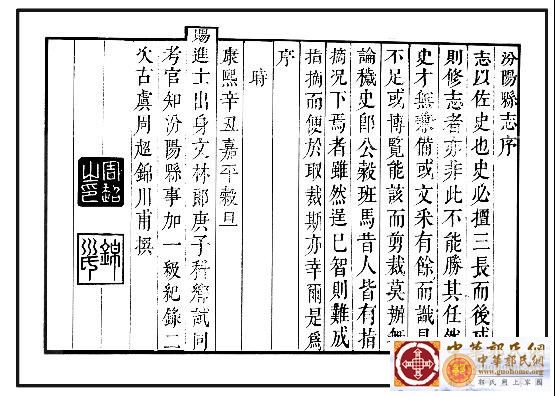 汾陽縣志序
志以佐史也史必擅三長而後
則修志者亦非此不能勝其任然
史才無兼備或文采有餘而識見
不足或博覽能該而剪裁莫辦無
論穢史即公穀班馬昔人皆有指
摘況下焉者雖然逞巳智則難成
指摘而便於取裁斯亦幸爾是為
序
時
康熙辛丑嘉平穀旦
賜進士出身文林郎庚子科鄉試同
考官知汾陽縣事加一級紀錄二
次古虞周超錦川甫撰
周超之印
錦川氏
中華郭氏網
中華郭氏網
www.guohome.org
郭氏網上家園